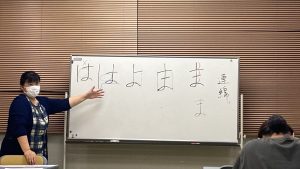 は は よ ま ま 連綿
ま